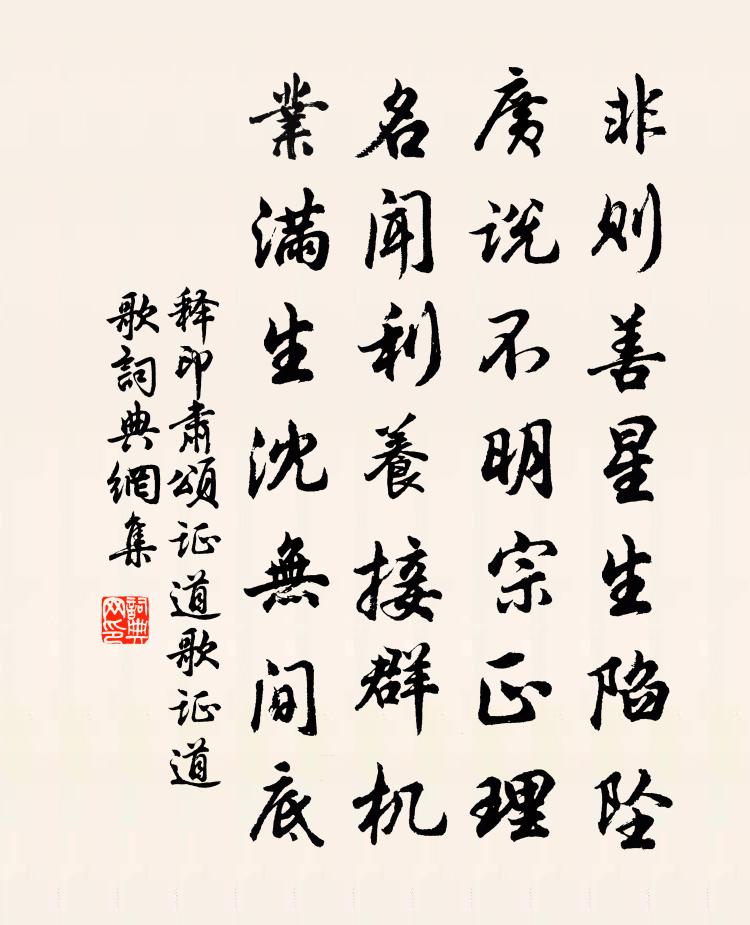 非则善星生陷坠
廣说不明宗正理
名闻利養接群机
業满生沈無间底
释印肃颂证道歌证道
歌詞典網集
詞典
网印